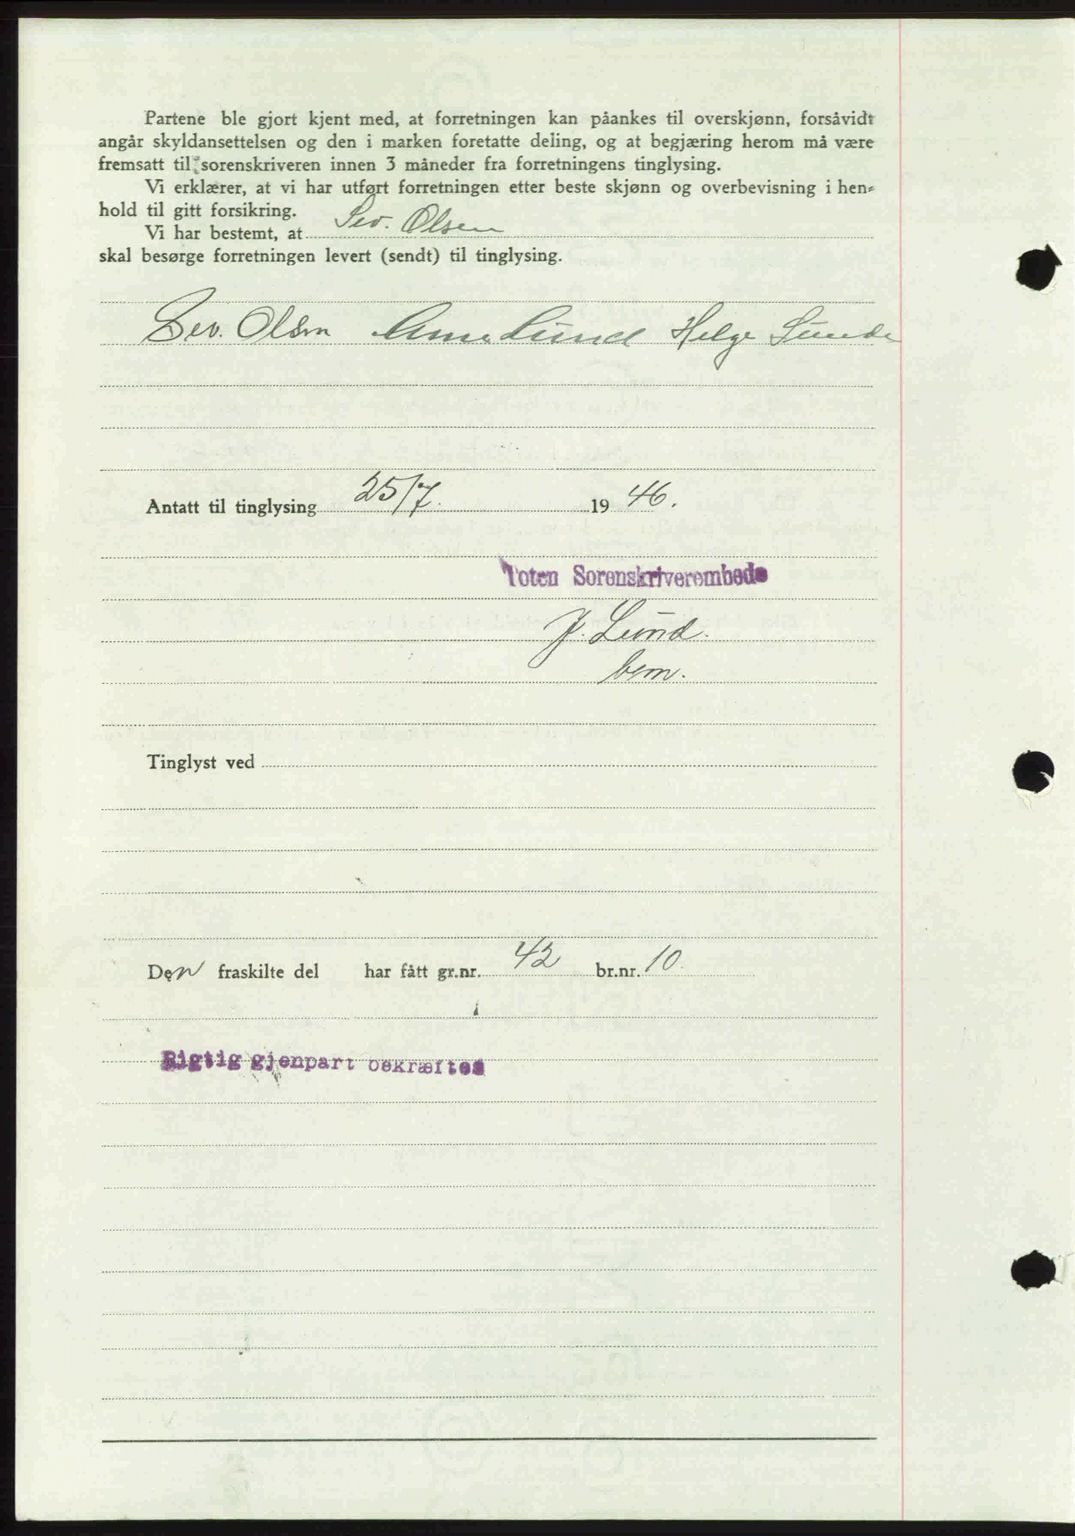 Partene ble gjort kjent med, at forretningen kan påankes til overskjønn, forsåvidt
angår skyldansettelsen og den i marken foretatte deling, og at begjæring herom må være
fremsatt til sorenskriveren innen 3 måneder fra forretningens tinglysing.
Vi erklærer, at vi har utført forretningen etter beste skjønn og overbevisning i hen-
hold til gitt forsikring.
Vi har bestemt, at Sev. Olsen
skal besørge forretningen levert (sendt) til tinglysing.
Sev. Olsen Arne Lund Helge Lunde
Antatt til tinglysing 25/7. 1946.
Toten Sorenskriverembede
J. Lund.
bem.
Tinglyst ved
Den fraskilte del har fått gr.nr. 42 br.nr. 10
Rigtig gjenpart bekræftes